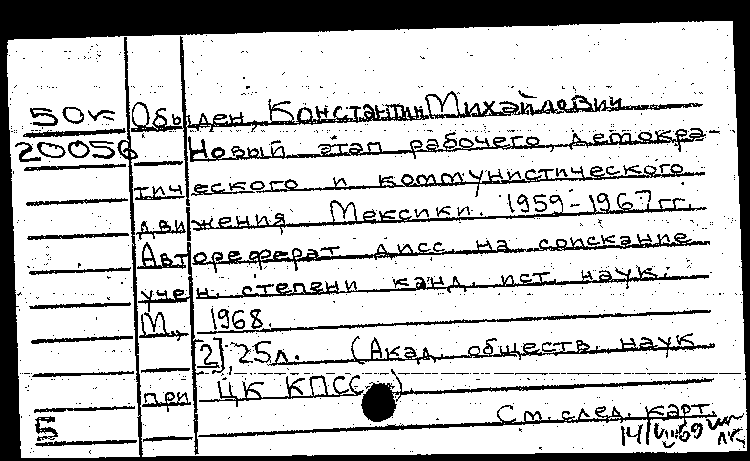 50к Обыден, Константин Михайлович
20056 Новый этап рабочего, демокра-
тического и коммунистического
движения Мексики. 1959-1967 гг.
Автореферат дисс. на соискание
учен. степени канд. ист. наук.
М., 1968.
[2], 25л. (Акад. обществ. наук
при ЦК КПСС)
См. след. карт.
Б